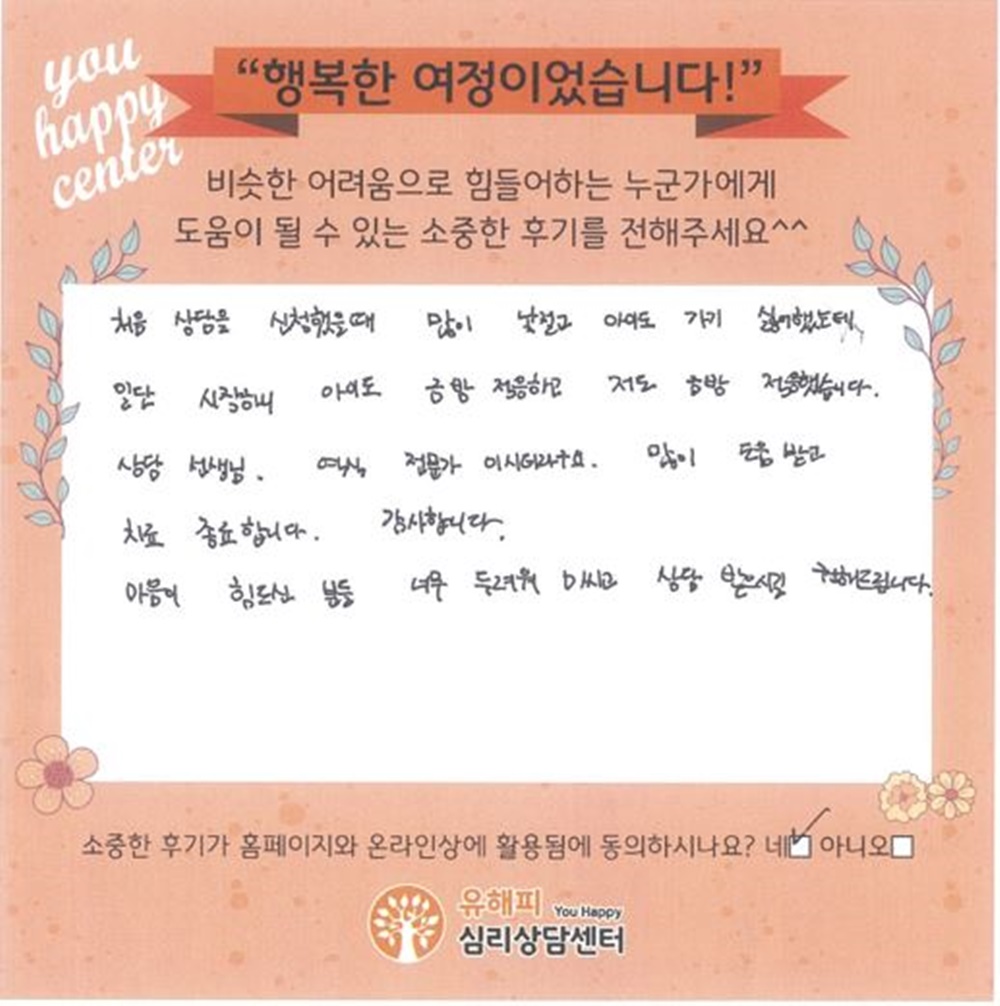 you
happy
center
“행복한 여정이었습니다!”
비슷한 어려움으로 힘들어하는 누군가에게
도움이 될 수 있는 소중한 후기를 전해주세요^^
처음 상담을 신청했을때 많이 낯설고 아이도 가기 싫어했는데,
일단 시작하니 아이도 금방 적응하고 저도 금방 적응했습니다.
상담 선생님. 역시 전문가 이시더라구요. 많이 도움 받고
치료 종료합니다. 감사합니다.
마음이 힘드신 분들 너무 두려워 마시고 상담 받으시길 추천드립니다.
소중한 후기가 홈페이지와 온라인상에 활용됨에 동의하시나요? 네 아니오
유해피 You Happy
심리상담센터